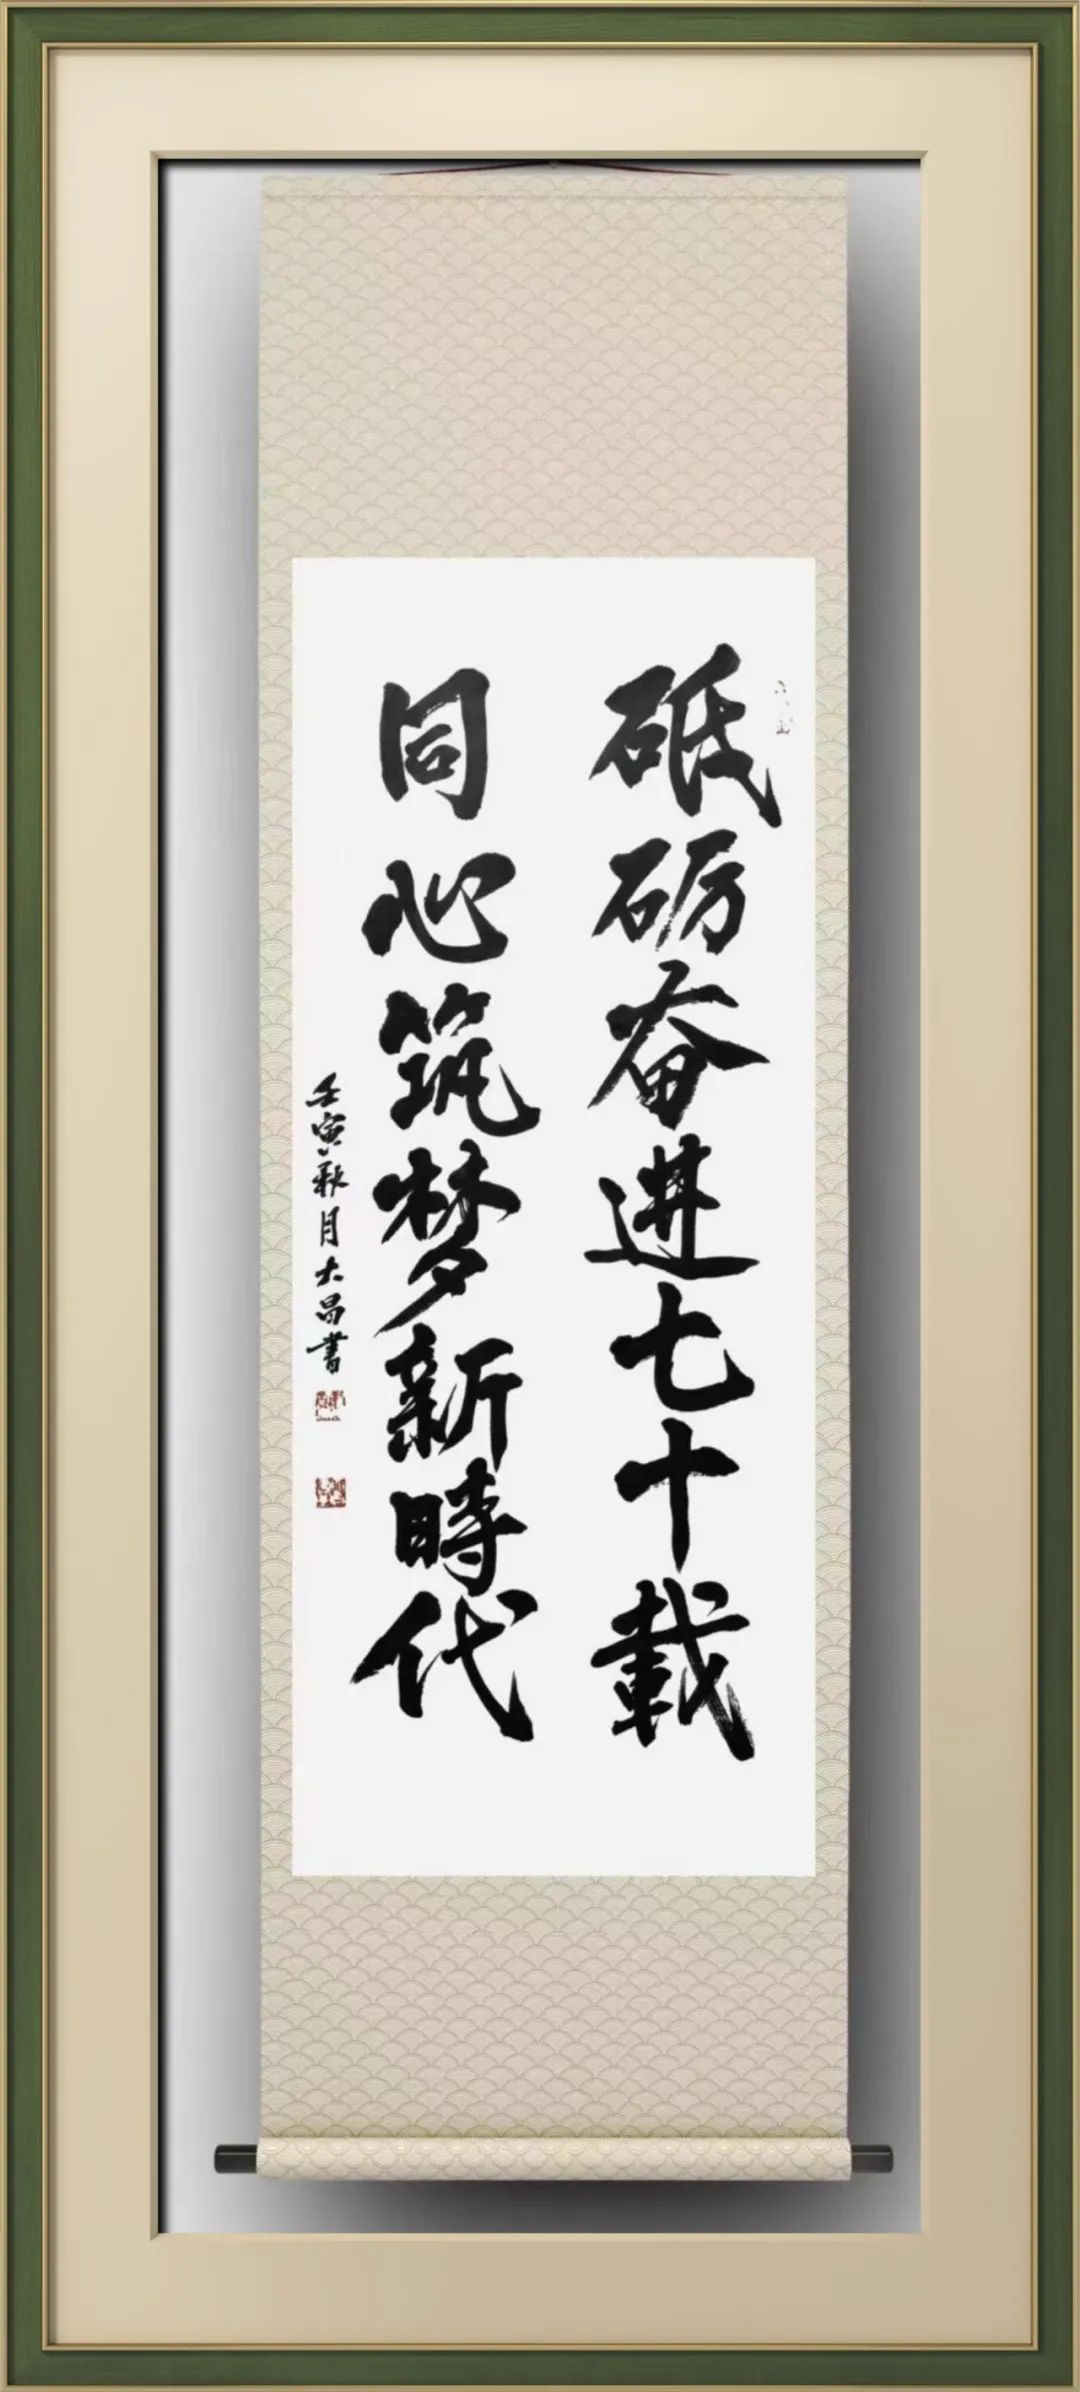 砥砺奋进七十載
同心筑梦新時代
壬寅秋月大昌書